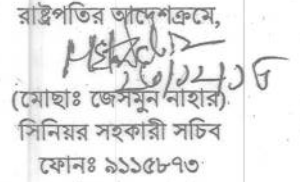 রাষ্ট্রপতির আদেশক্রমে,
(মোছাঃ জেসমুন নাহার)
সিনিয়র সহকারী সচিব
ফোনঃ ৯১১৫৮৭৩